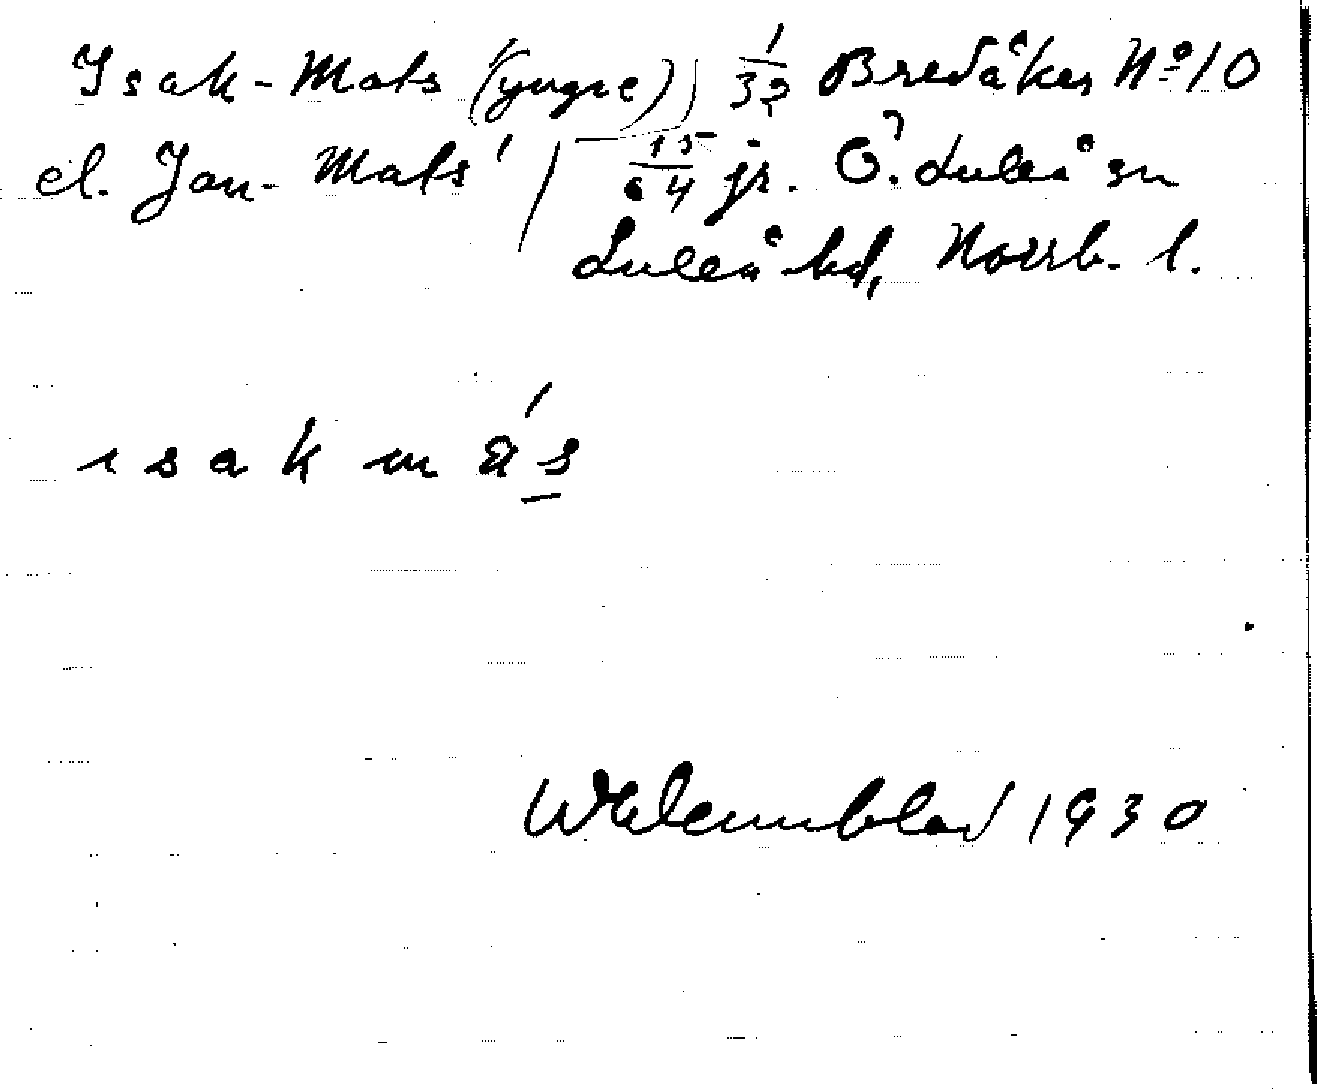 Isak-Mats (yngre) 1/32 Bredåker No 10
el. Jan-Mats' 15/64 jr. Ö. Luleå sn
Luleå hd, Norrb. l.
isak mas
1930